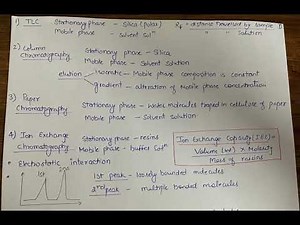 1) TLC Stationary phase - Silica (Polar)
Mobile phase - Solvent Solⁿ
Rf = distance traversed by sample
" " Solution
2) Column Chromatography Stationary phase - Silica
Mobile phase - Solvent Solution
elution Isocratic - Mobile phase composition is constant
gradient - alteration of Mobile phase concentration
3) Paper Chromatography Stationary phase - Water molecules trapped in cellulose of paper
Mobile phase - Solvent Solution
4) Ion Exchange Chromatography Stationary phase - resins
Mobile phase - buffer Solⁿ
Ion Exchange Capacity (IEC) =
Volume (ml) x Molarity
Mass of resins
• Electrostatic interaction
1st 2nd
1st peak - loosely bounded molecules
2nd peak - multiple bonded molecules